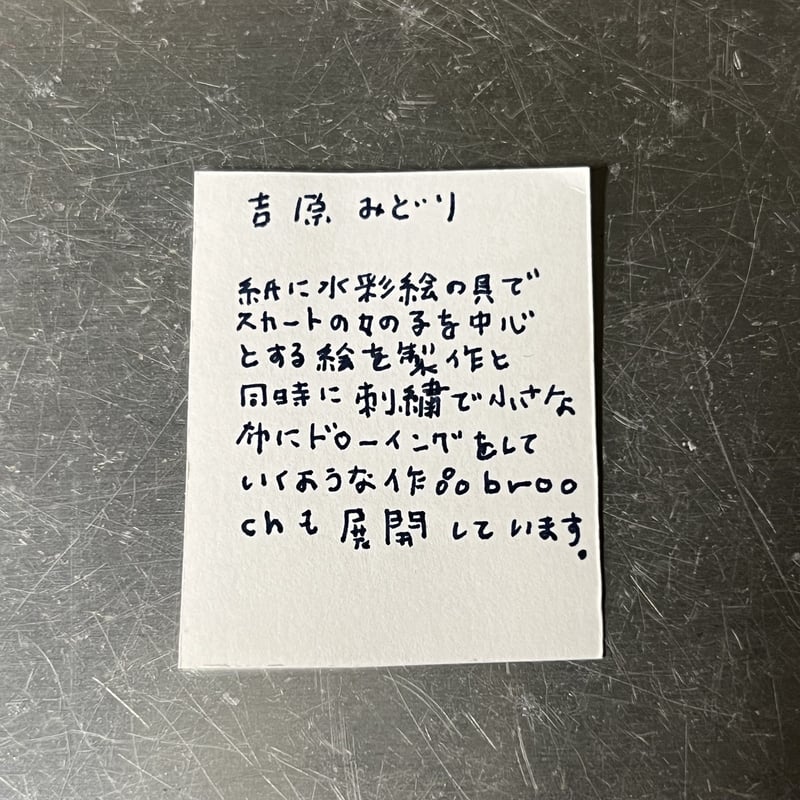 吉原 みどり
紙に水彩絵の具で
スカートの女の子を中心
とする絵を製作と
同時に刺繍で小さな
布にドローイングをして
いくような作品broo
chも展開しています.